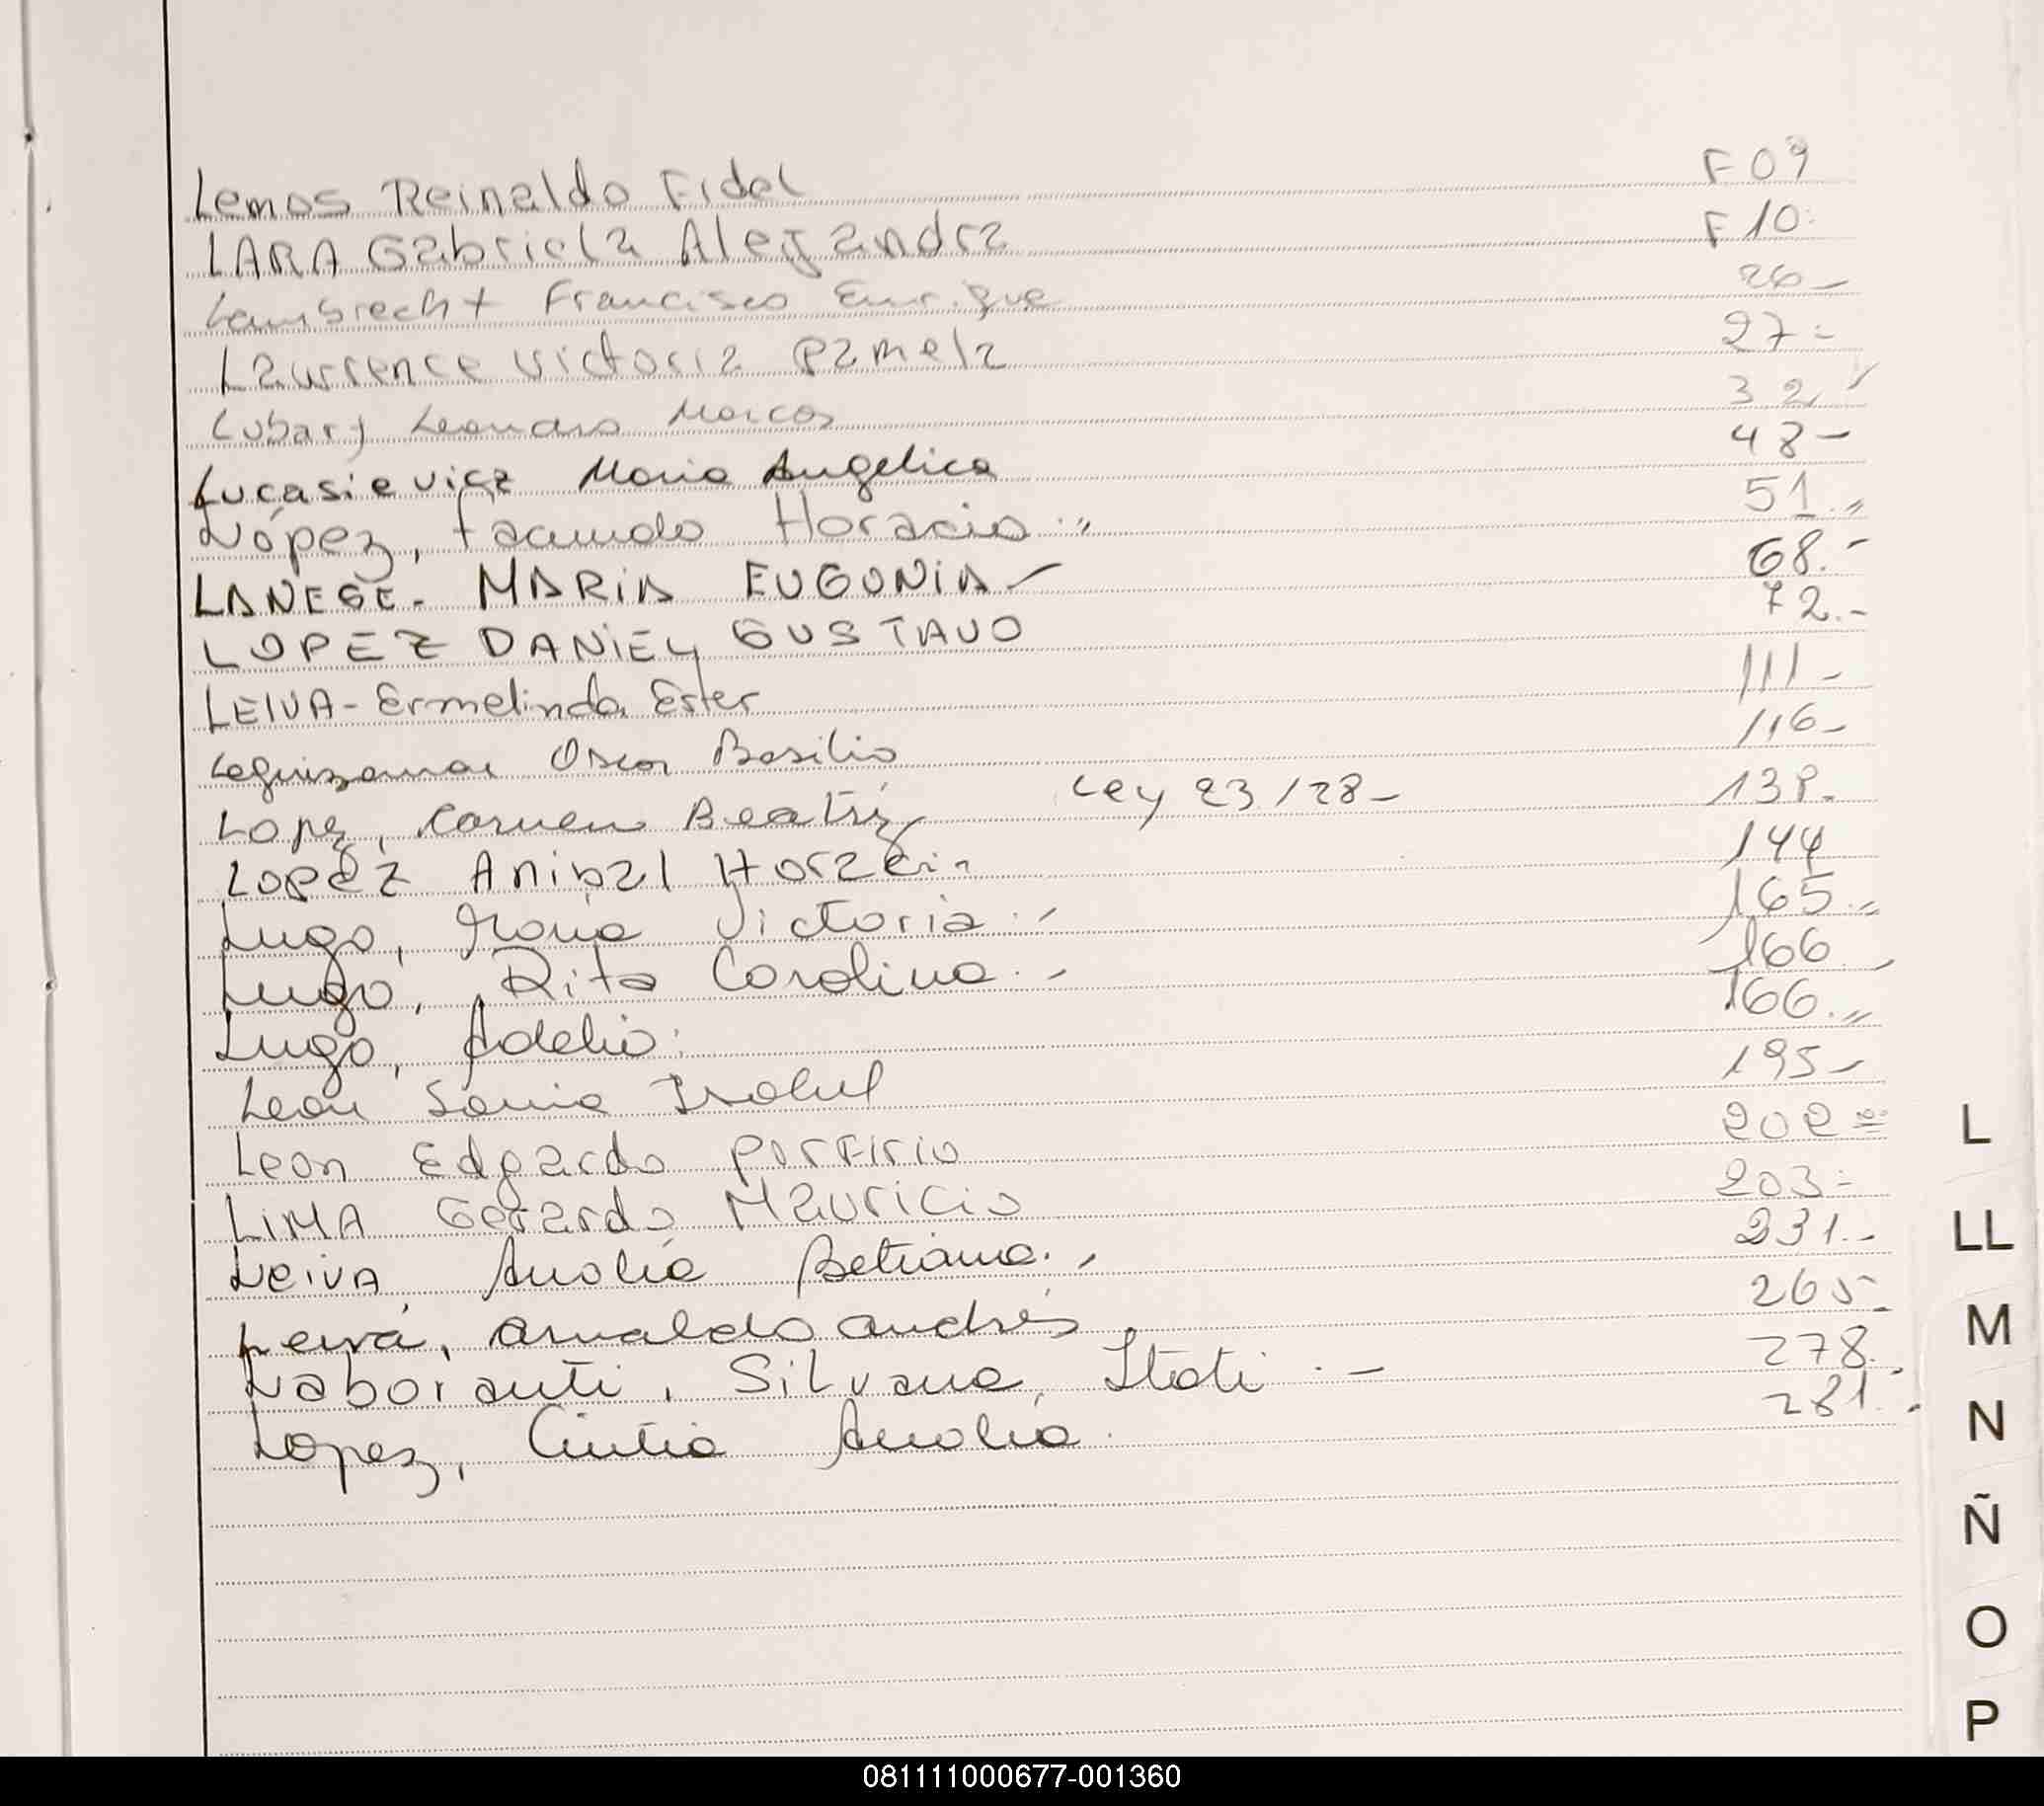 Lemos Reinaldo Fidel F 09
LARA Gabriela Alejandra F 10.
Lambrecht Francisco Enrique 26-
Laurrence Victoria Pamela 27=
Lubary Leandro Marcos 32
Lucasievicz Maria Angelica 48-
López, Facundo Horacio.,, 51.,,
LANEGE- MARIA EUGONIA- 68.-
LOPEZ DANIEL GUSTAVO 72.-
LEIVA-Ermelinda Ester 111-
Leguizamar Oscar Basilio 116-
Lopez, Carmen Beatriz Ley 23/28- 138-
LOPEZ Anibal Horacio 144
Lugo, María Victoria.- 165.,,
Lugo, Rita Carolina.- 166.
Lugo, Adelio. 166.,,
Leon Sonia Isabel 195-
Leon Edgardo Porfirio 202=
LIMA Gerardo Mauricio 203=
Leiva Analía Betiana.- 231.-
Leiva, Arnaldo Andrés 265-
Laboranti, Silvana, Itati.- 278.
Lopez, Cintia Analía. 281.-
L
LL
M
N
Ñ
O
P
081111000677-001360